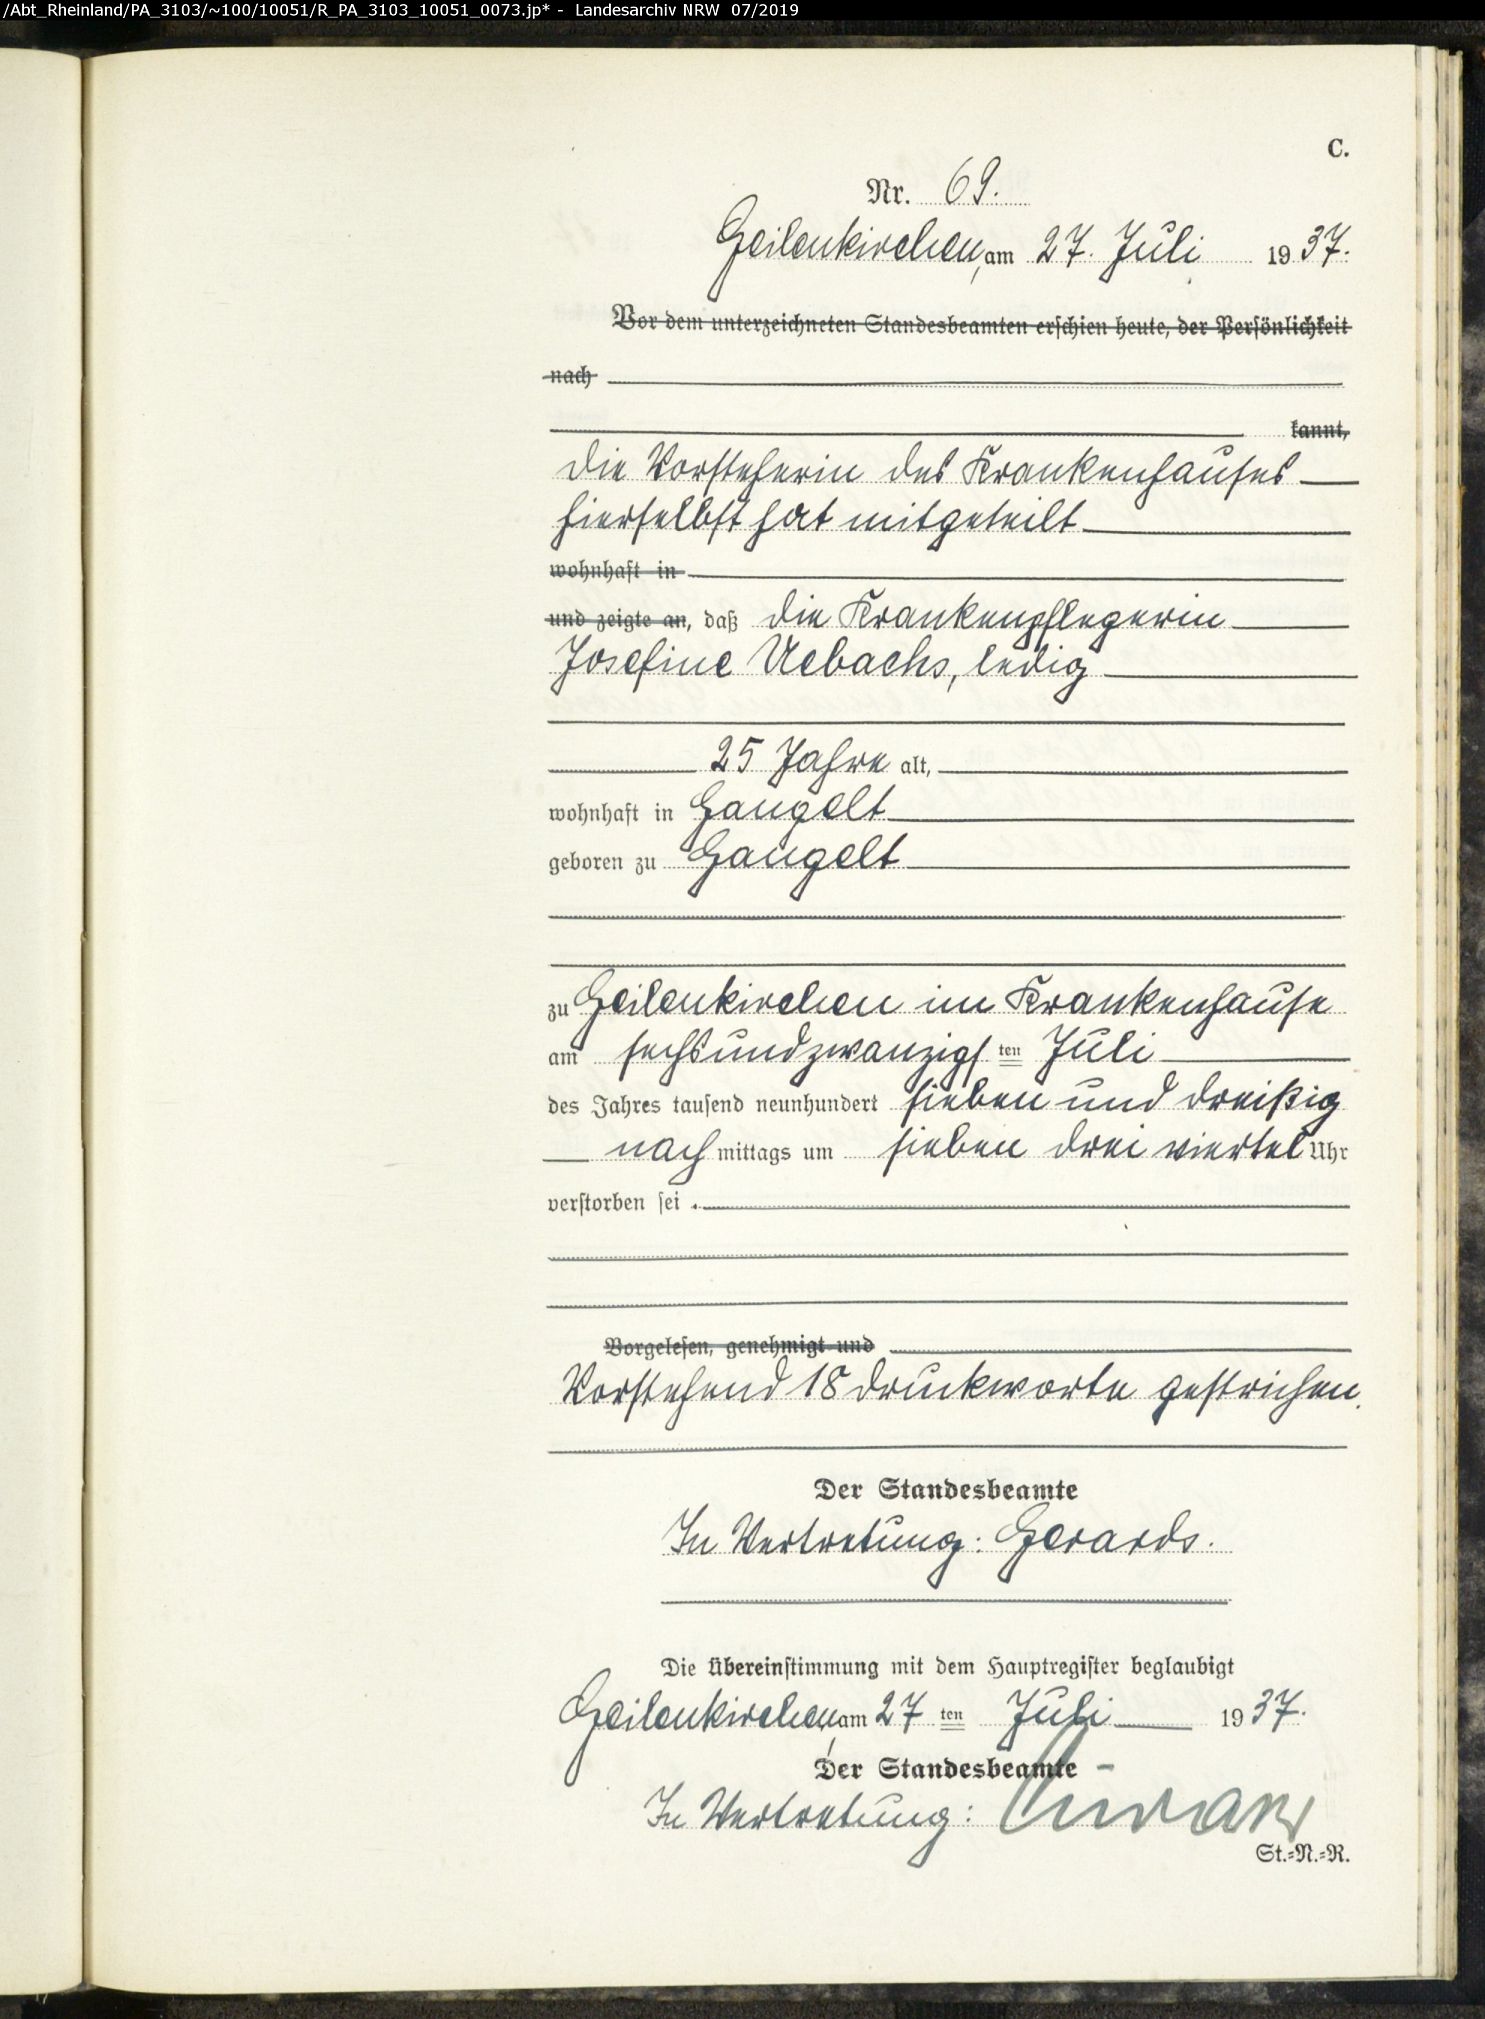 /Abt_Rheinland/PA_3103/~100/10051/R_PA_3103_10051_0073.jp* - Landesarchiv NRW 07/2019
C.
Nr. 69.
Geilenkirchen, am 27. Juli 1937.
Vor dem unterzeichneten Standesbeamten erschien heute, der Persönlichkeit
nach
kannt,
die Vorsteherin des Krankenhauses
hierselbst hat mitgeteilt
wohnhaft in
und zeigte an, daß die Krankenpflegerin
Josefine Uebachs, ledig
25 Jahre alt,
wohnhaft in Gangelt
geboren zu Gangelt
zu Geilenkirchen im Krankenhause
am sechsundzwanzigsten Juli
des Jahres tausend neunhundert sieben und dreißig
nachmittags um sieben drei viertel Uhr
verstorben sei.
Vorgelesen, genehmigt und
Vorstehend 18 Druckworte gestrichen.
Der Standesbeamte
In Vertretung: Gerards.
Die Übereinstimmung mit dem Hauptregister beglaubigt
Geilenkirchen, am 27ten Juli 1937.
Der Standesbeamte
In Vertretung:
St.-N.-R.